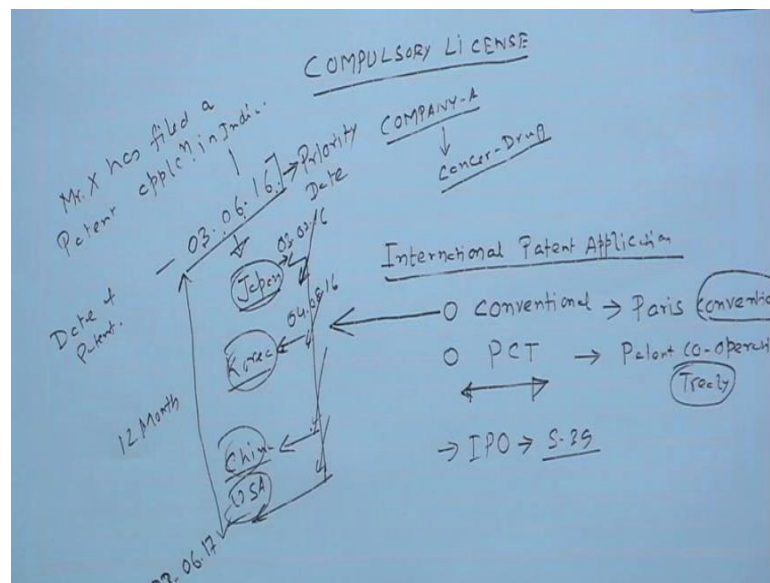 COMPULSORY LICENSE
Mr. X has filed a
Patent appl^n. in India.
COMPANY-A
Cancer-Drug
03.06.16. → Priority
Date
Date of
Patent.
Japan
03.03.16
Korea
04.08.16
China
USA
12 Month
03.06.17
International Patent Application
O Conventional → Paris Conventio
O PCT → Patent Co-operati
Treaty
→ IPO → S-39